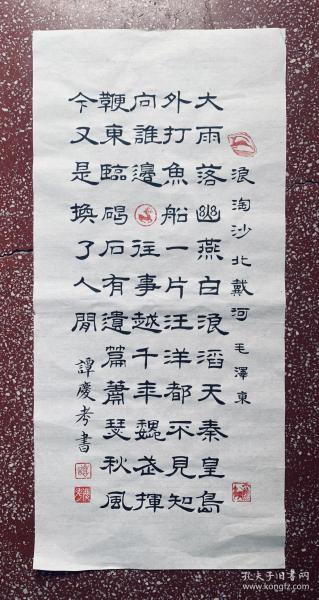 浪淘沙北戴河 毛澤東
大雨落幽燕白浪滔天秦皇島
外打魚船一片汪洋都不見知
向誰邊 往事越千年魏武揮
鞭東臨碣石有遺篇蕭瑟秋風
今又是換了人間
譚慶孝書
孔夫子旧书网